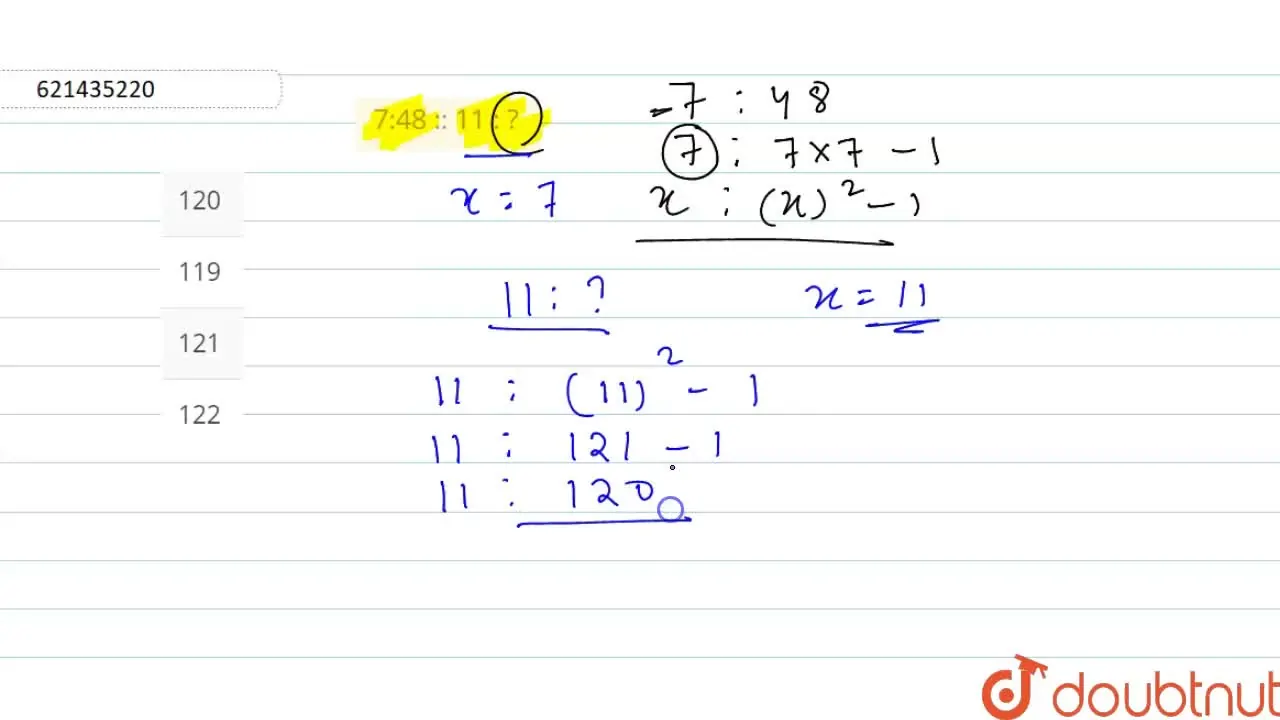 621435220
7:48 :: 11 : ?
7 : 48
7 : 7 × 7 - 1
x = 7
x : (x)² - 1
120
119
121
122
11 : ?
x = 11
11 : (11)² - 1
11 : 121 - 1
11 : 120
doubtnut